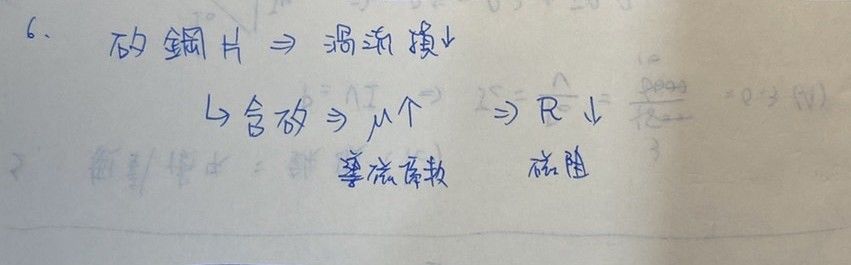 6. 矽鋼片 ⇒ 渦流損↓
↳ 含矽 ⇒ μ↑ ⇒ R↓
導磁係數 磁阻